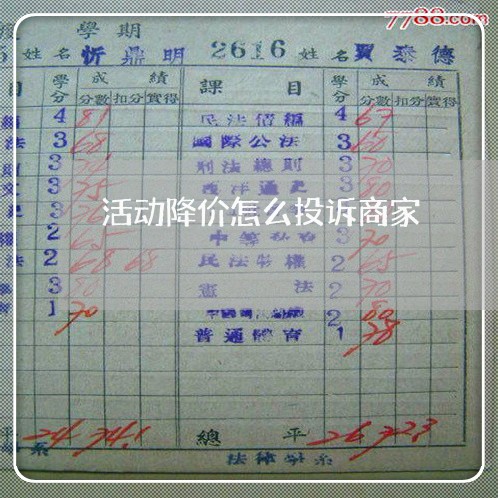 7788.com
學期
姓名 忻鼎明 2616 姓名 賈泰德
目 學分 成績 課目 學分 成績
分數 扣分 實得 分數 扣分 實得
4 81 民法債編 4 67
法 3 68 國際公法 3 60
3 刑法總則 3 70
3 75 西洋通史 3 80
活动降价怎么投诉商家
2 65 3 70
法 2 68 68 民法物權 2 65
3 80 憲法 2 70
1 70 2 80
普通體育 1 78
平 24 74.1 總平 26 72.3
系 法律學系